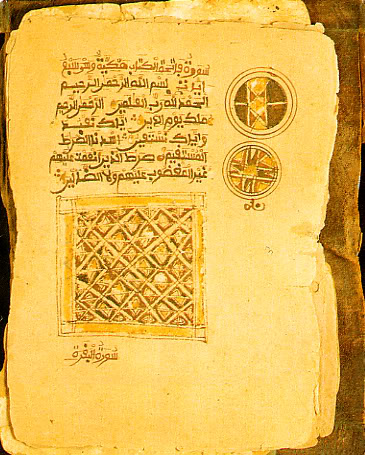 سورة فاتحة الكتاب مكية وهي سبع
ايات بسم الله الرحمن الرحيم
الحمد لله رب العلمين الرحمن الرحيم
ملك يوم الدين اياك نعبد
واياك نستعين اهدنا الصرط
المستقيم صرط الذين انعمت عليهم
غير المغضوب عليهم ولا الضالين
سورة البقرة